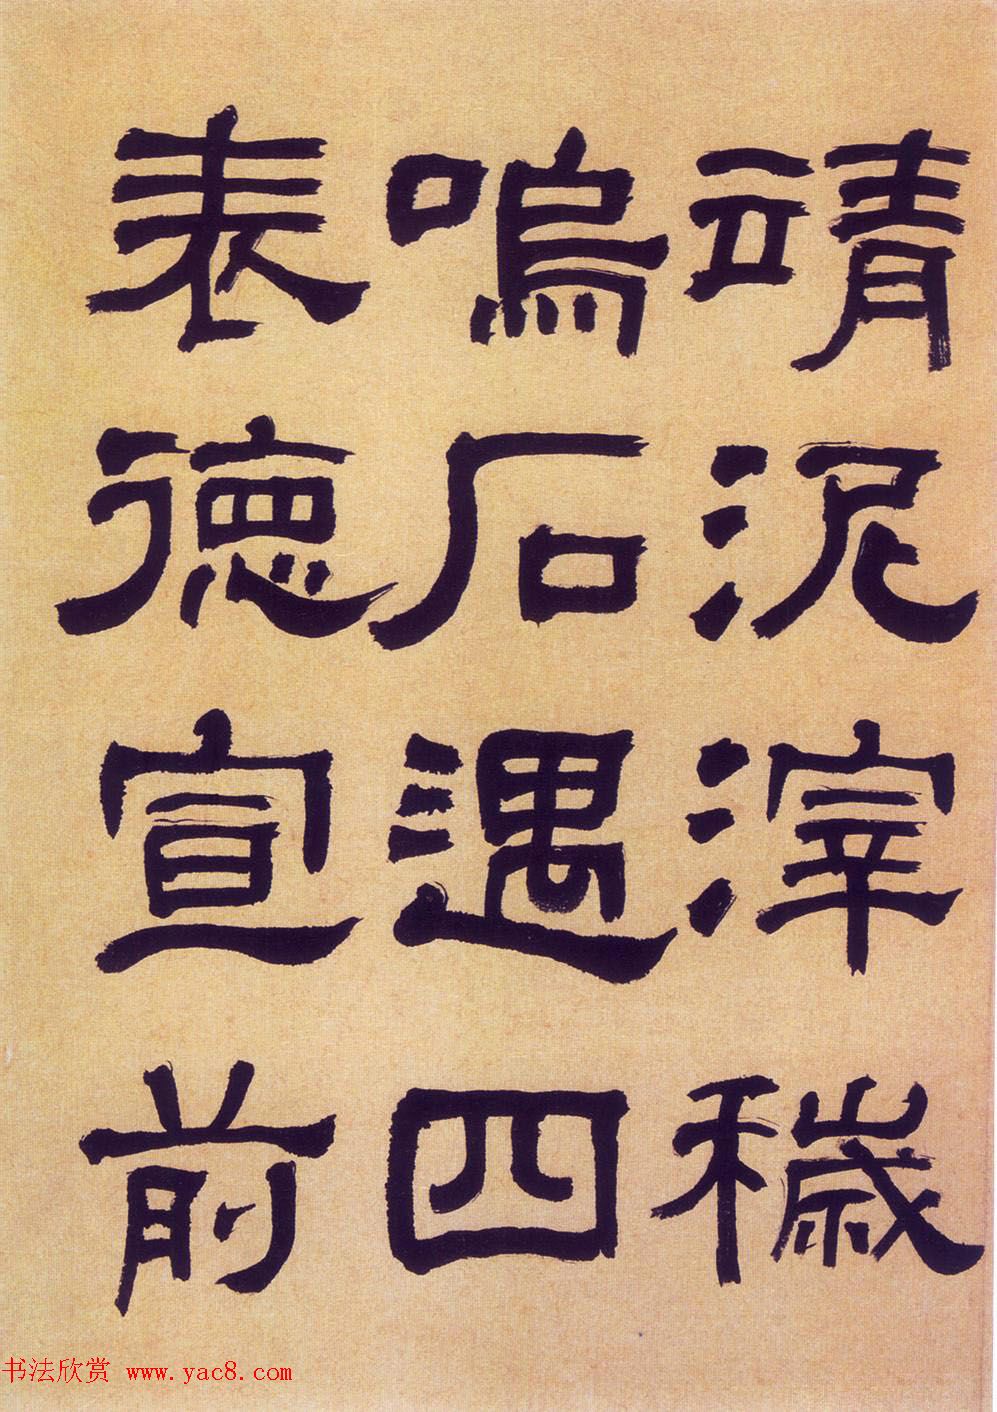 靖泥滓穢
嗚石遇四
表德宣前
书法欣赏 www.yac8.com